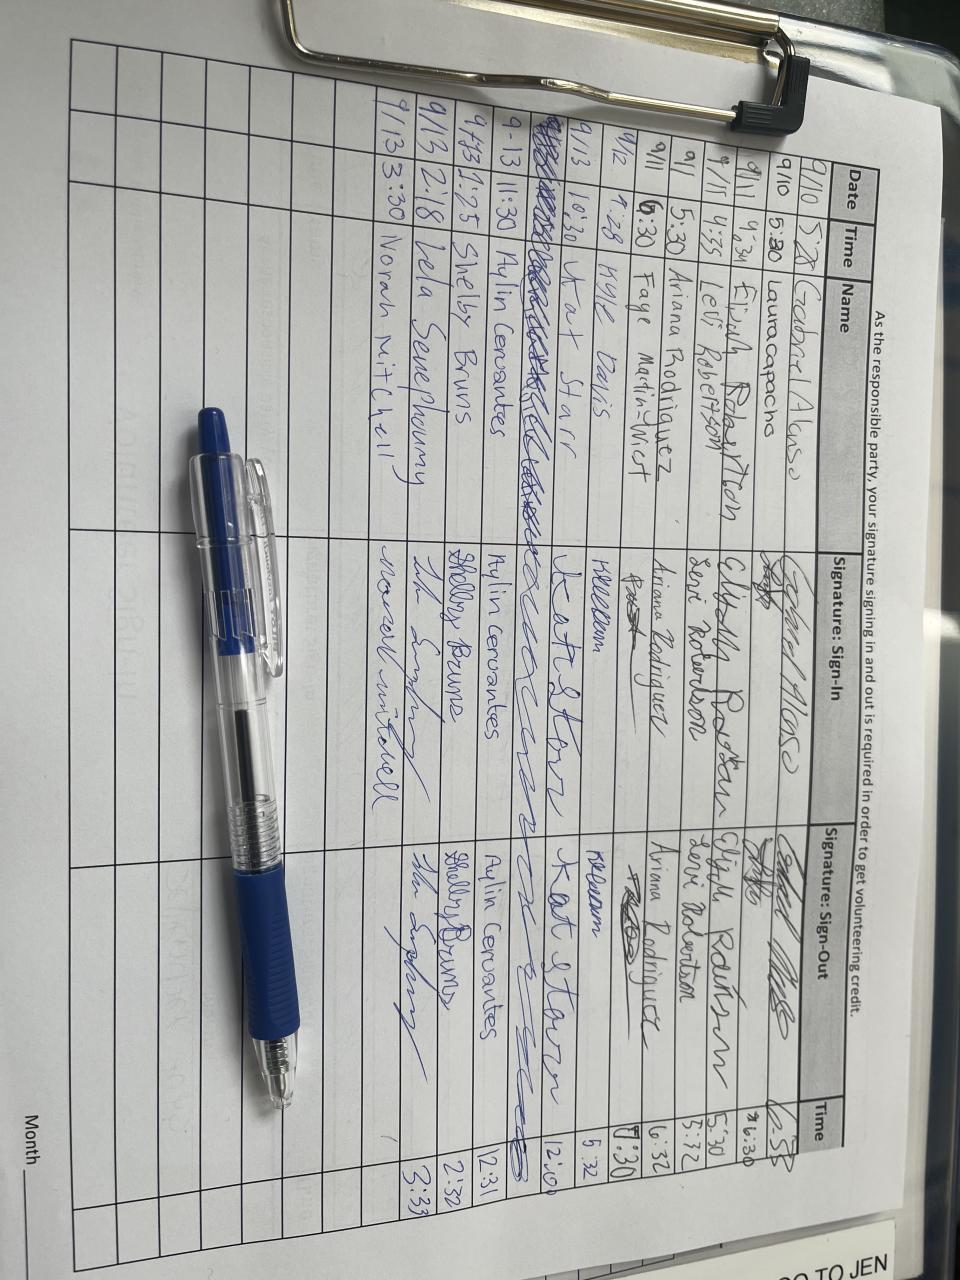 As the responsible party, your signature signing in and out is required in order to get volunteering credit.
Date Time Name Signature: Sign-In Signature: Sign-Out Time
9/10 Gabriel Alonso
9/10 5:20 Laura Capacho 6:30
9/11 4:34 Elijah
9/11 4:35 Levi Robertson Levi Robertson Levi Robertson 5:32
9/11 5:30 Ariana Rodriguez Ariana Rodriguez Ariana Rodriguez 6:32
9/11 6:30 Faye 7:30
9/12 Kyle Davis 5:32
9/13 10:30 Kat Starr Kat Starr Kat Starr 12:00
9-13 11:30 Aylin Cervantes Aylin Cervantes Aylin Cervantes 12:31
9/13 1:25 Shelby Bruns Shelby Bruns Shelby Bruns 2:32
9/13 2:18 Lela Senephoumy 3:33
9/13 3:30 Norah Mitchell Norah Mitchell
Month
TO JEN